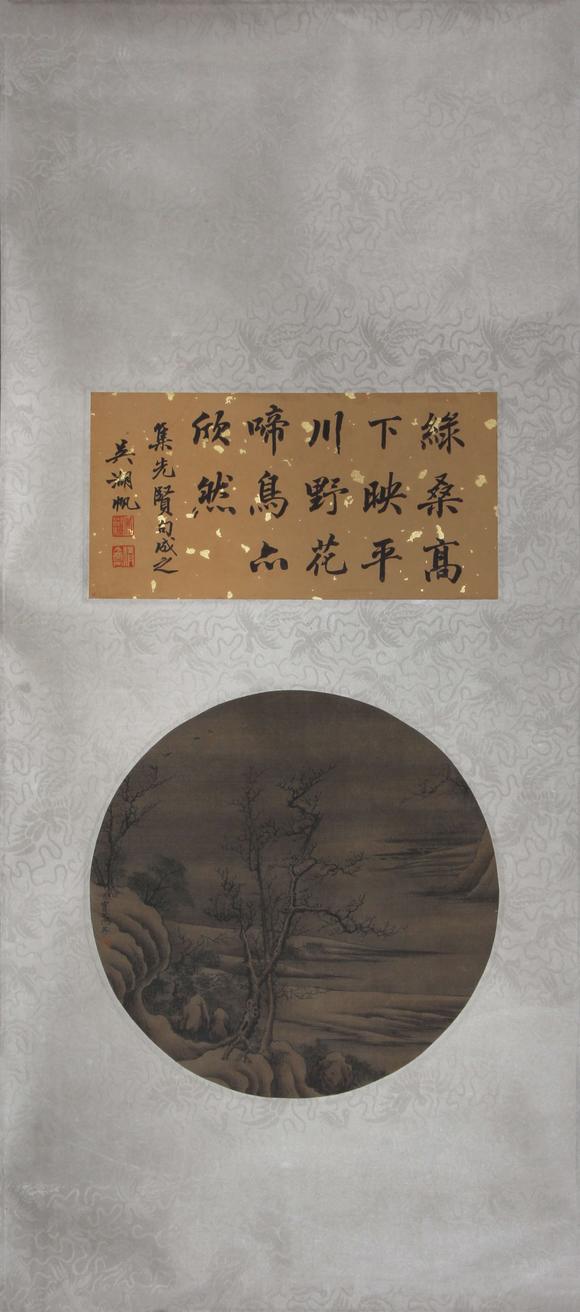 綠桑高
下映平
川野花
啼鳥亦
欣然
集先賢句成之
吳湖帆